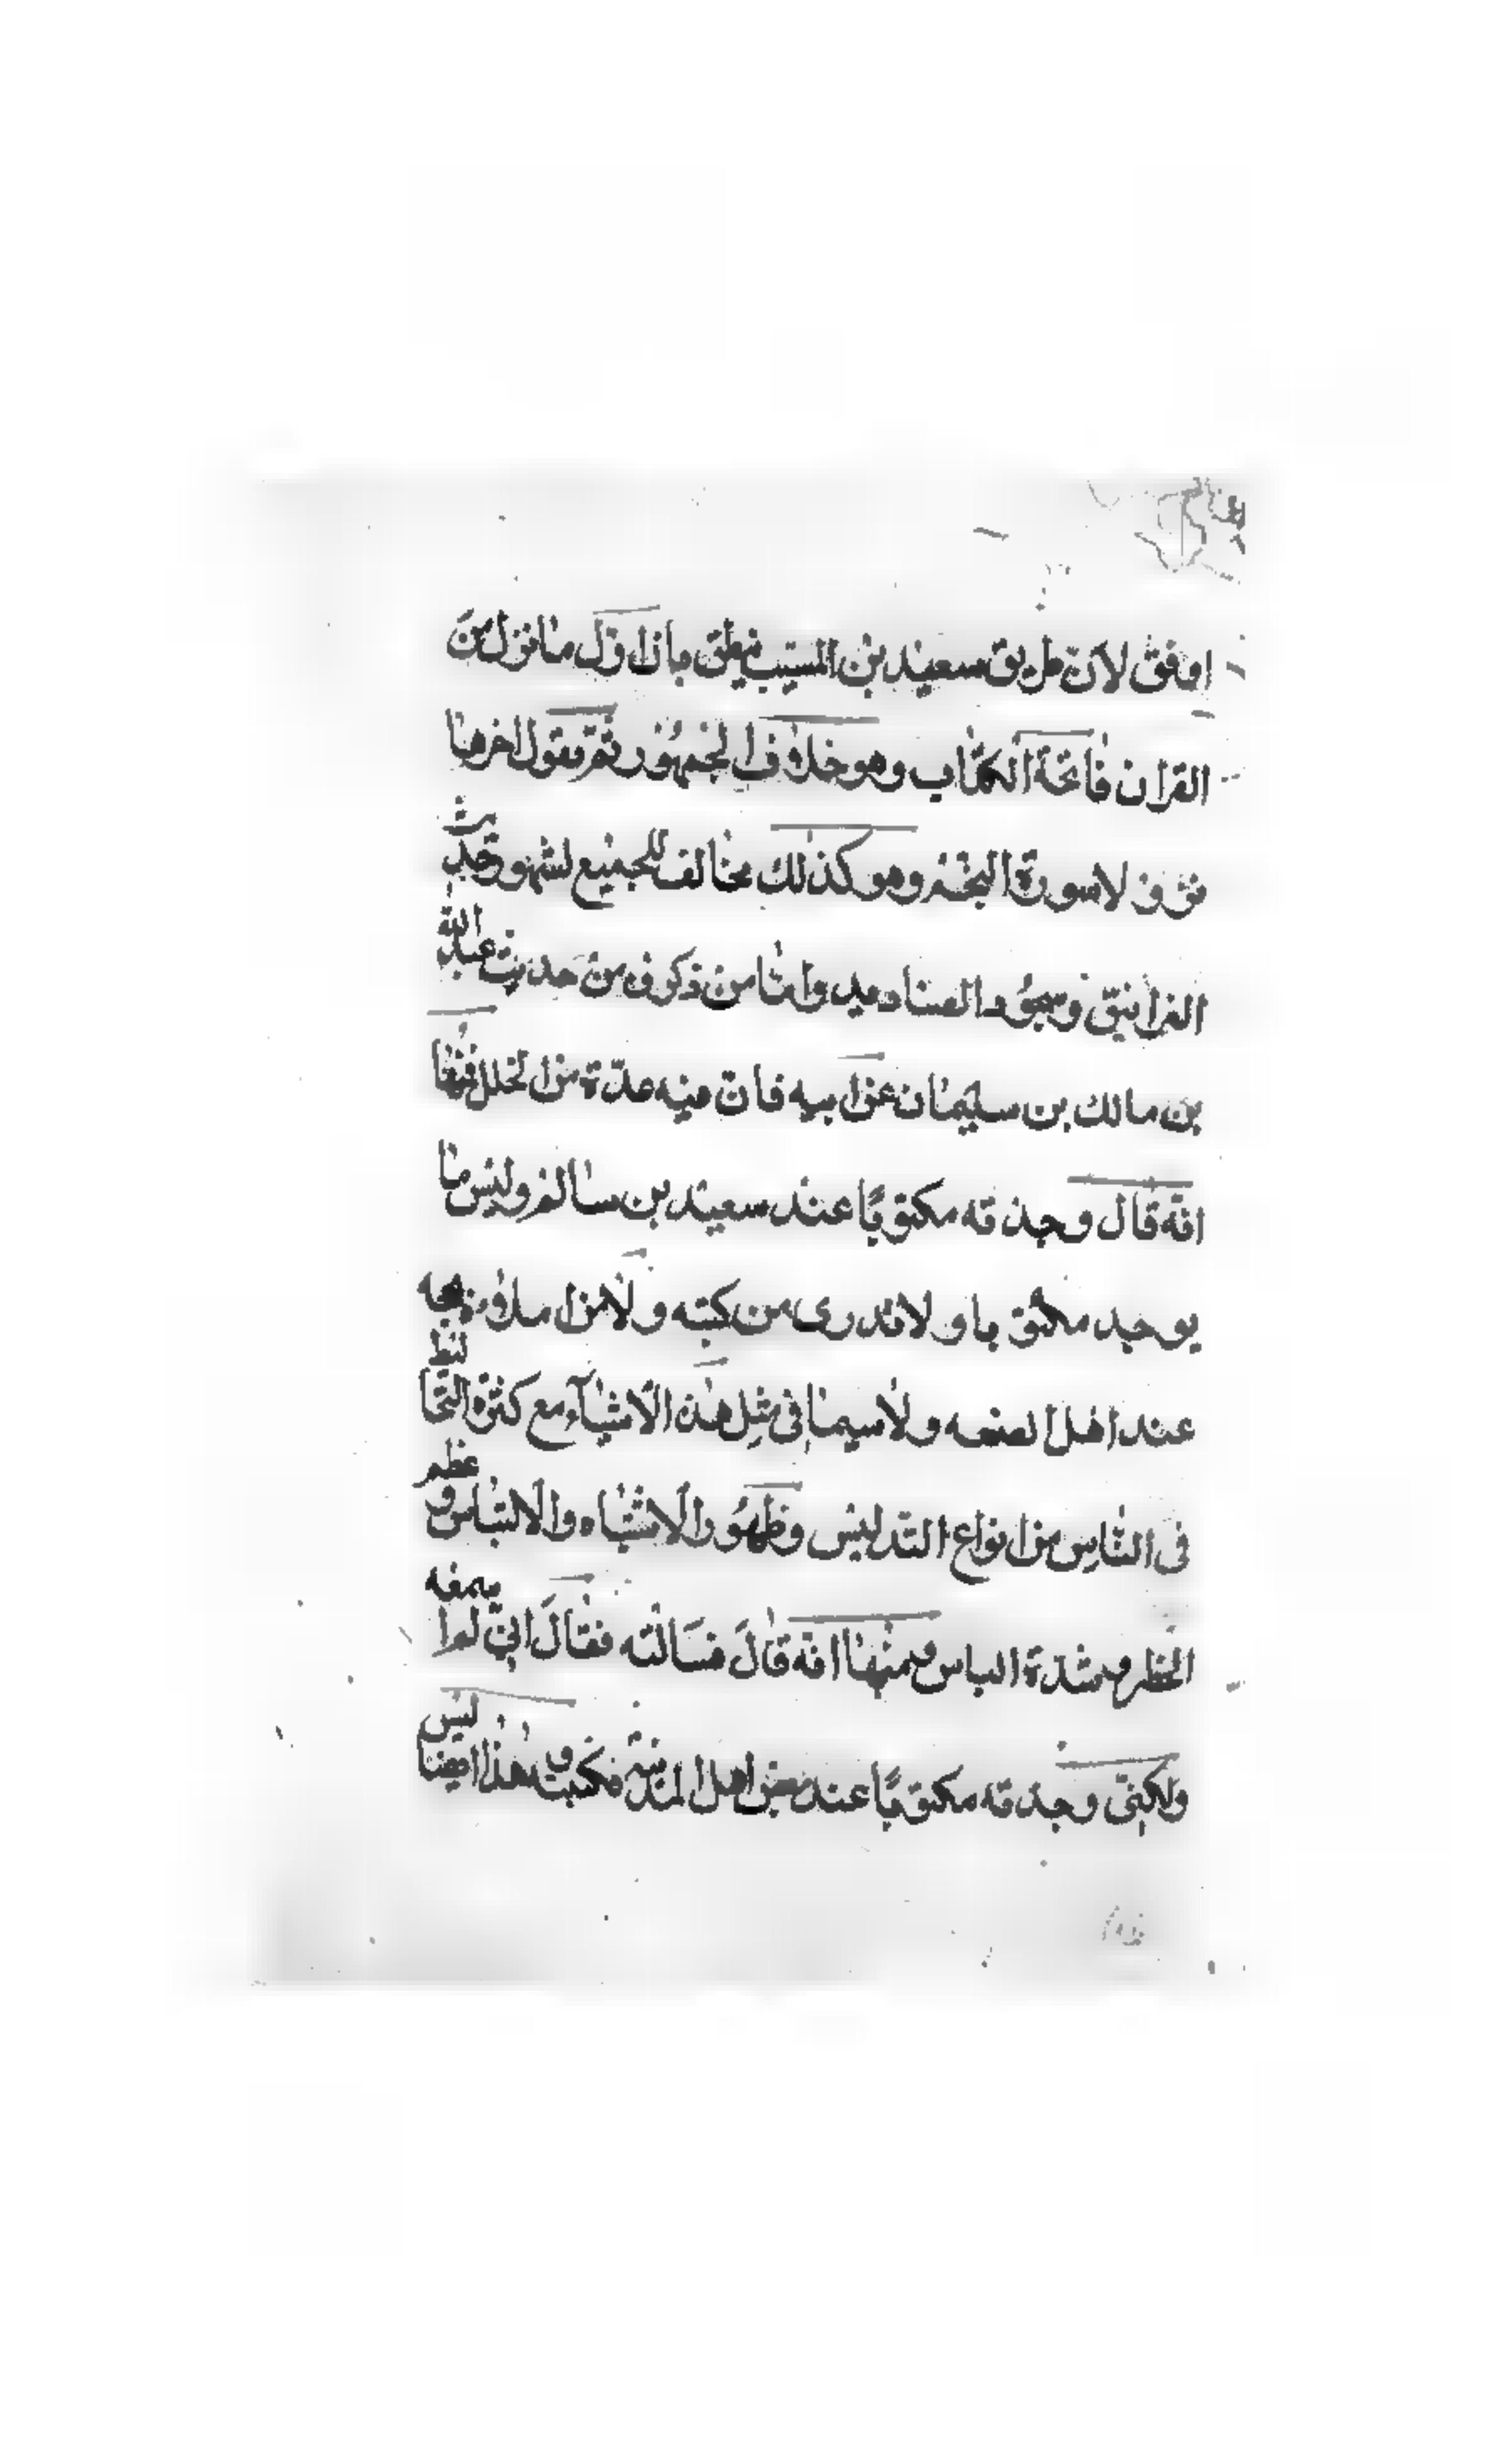 اوفق لان طريق سعيد بن المسيب ينطق بان اول ما نزل من
القران فاتحة الكتاب وهو خلاف الجمهور ثم يقول اخرها
نزولا سورة النجم وهو كذلك مخالف للجميع لشهرة حديث
الغرانيق وسجود الصناديد واما من ذكر من حديث عبد الله
بن مالك بن سليمان عن ابيه فان فيه عدة من الخلل فمنها
انه قال وجدته مكتوبا عند سعيد بن سالم وليس ما
يوجد مكتوبا ولا ندرى من كتبه ولا من املاه بحجه
عند اهل الصنعه ولا سيما فى مثل هذه الاشياء مع كثرة التخاليط
فى الناس من انواع التدليس وظهور الاشتباه والالتباس وعظم
الخطر وشدة الباس ومنها انه قال فسالته فقال انى لم اسمعه
ولكنى وجدته مكتوبا عند بعض اهل المدينة فكتبته وهذا ايضا ليس